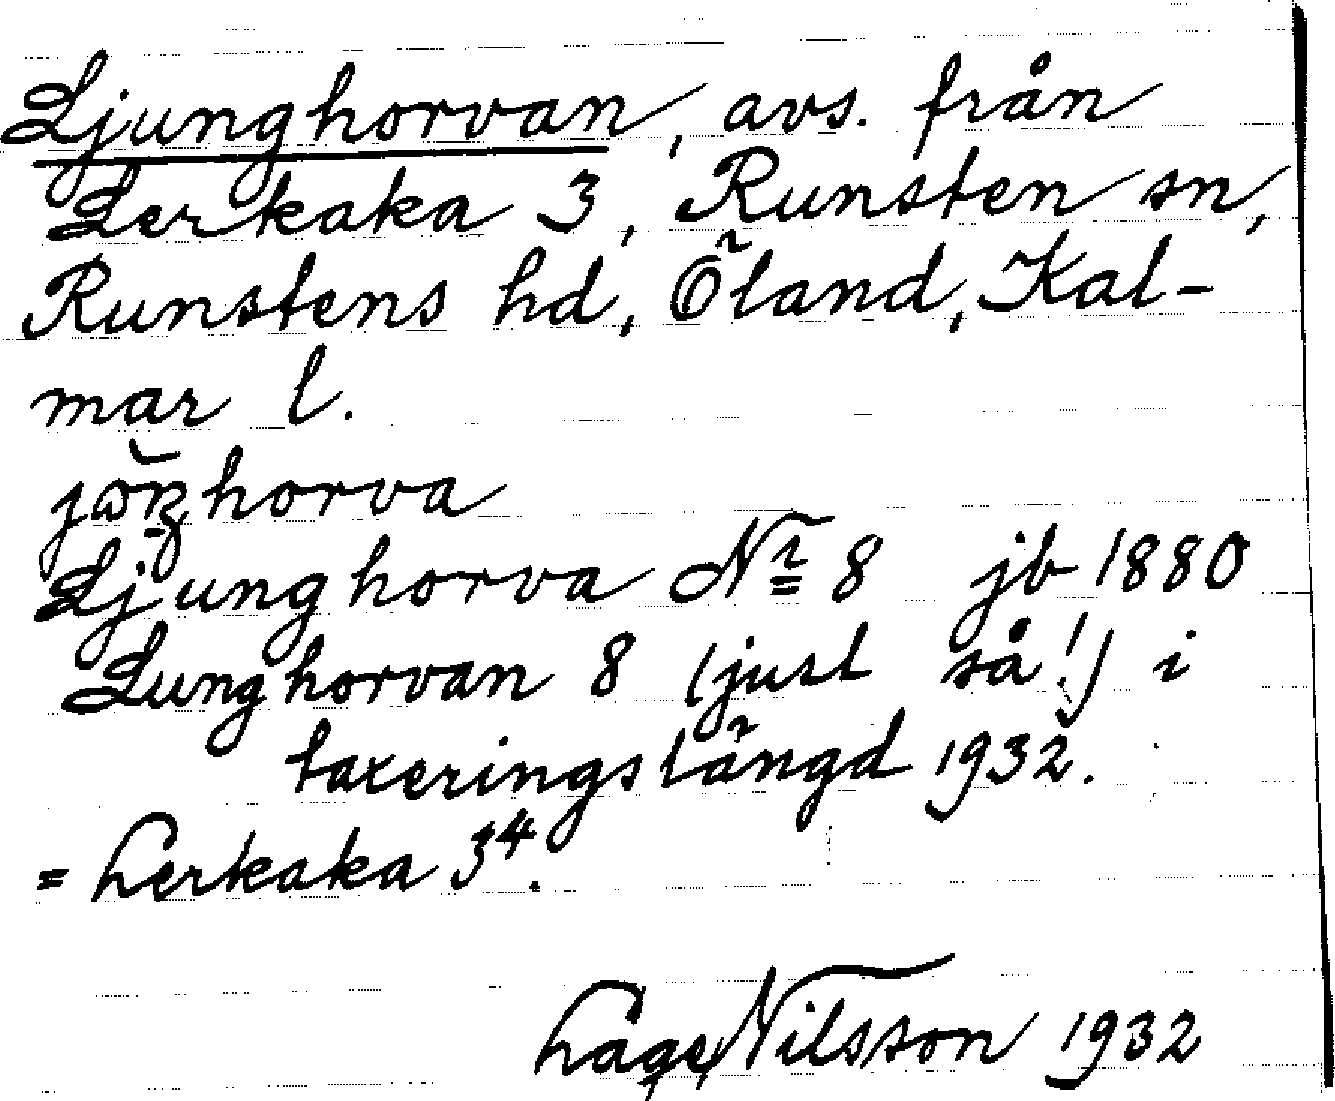 Ljunghorvan, avs. från
Lerkaka 3, Runsten sn,
Runstens hd, Öland, Kal-
mar l.
horva
Ljunghorva No 8 jb 1880
Lunghorvan 8 (just så!) i
taxeringslängd 1932.
= Lerkaka 3⁴.
Lage Nilsson 1932